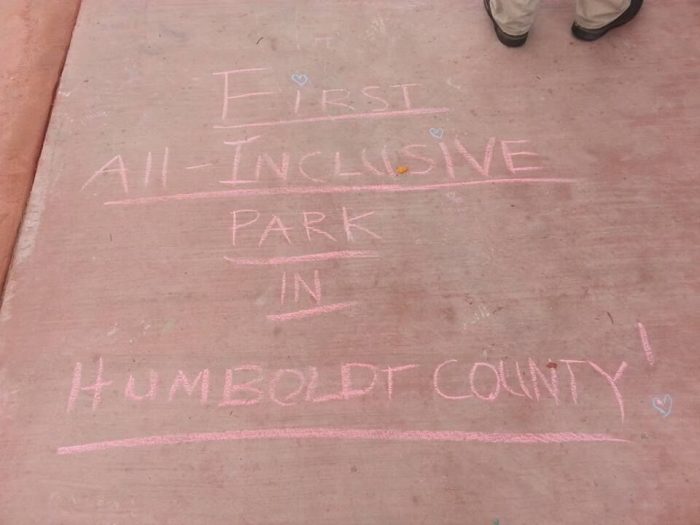 First
All-Inclusive
PARK
IN
HUMBOLDT COUNTY!